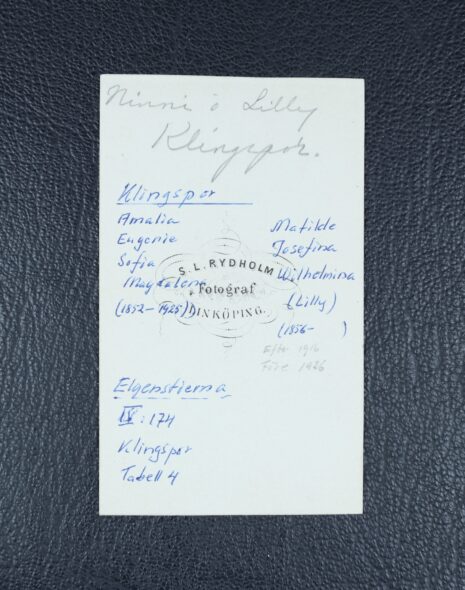 Ninni o Lilly
Klingspor.
Klingspor
Amalia
Eugenie
Sofia
Magdalena
(1852-1925)
Matilde
Josefina
Wilhelmina
(Lilly)
(1856- )
Efter 1916
Före 1926
S. L. RYDHOLM
Fotograf
LINKÖPING.
Elgenstierna
IV: 174
Klingspor
Tabell 4